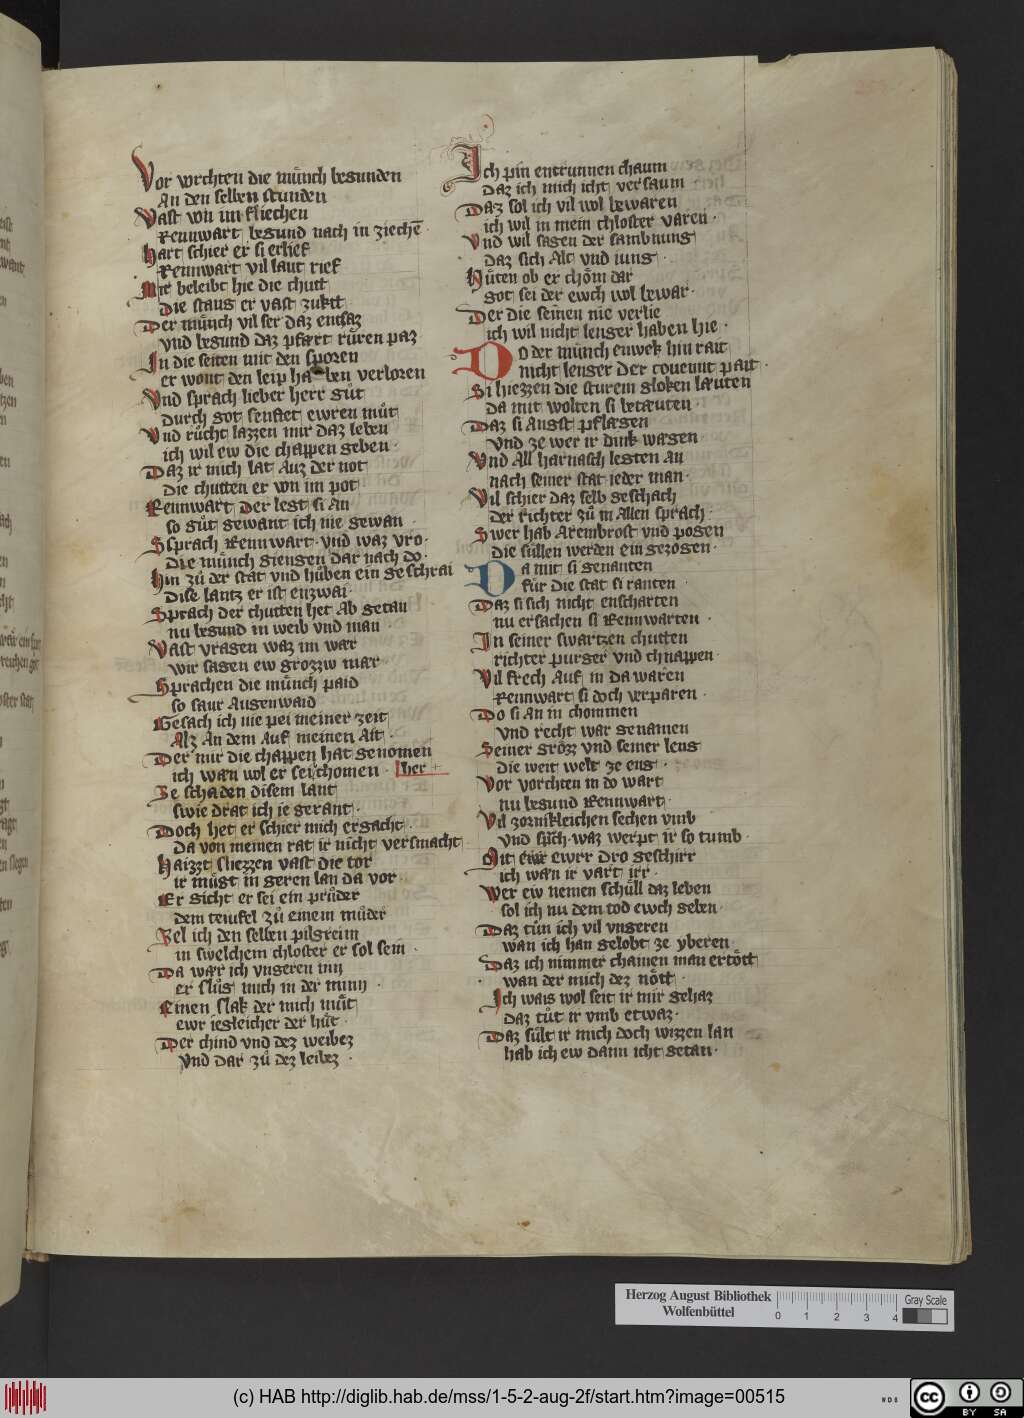 Vor vorchten die mu̇nch begunden
An den selben stunden
Vast von im fliechen
Rennwart begund nach in ziechē
hart schier er si erlief
Rennwart vil laut rief
Mir beleibt hie die chutt
Die staug er vast zuktt
Der mu̇nch vil ser daz entsaz
vnd begund daz pfært ru̇ren paz
In die seiten mit den sporen
er wont den leip haben verloren
Vnd sprach lieber herr gůt
durch got senftet ewren můt
Vnd růcht lazzen mir daz leben
ich wil ew die chappen geben
Daz ir mich lat Auz der not
Die chutten er von im pot
Rennwart der legt si An
so gůt gewant ich nie gewan
Sprach Rennwart vnd waz vro
Die mu̇nch giengen dar nach do
hin zů der stat vnd hůben ein geschrai
Dise lantz er ist enzwai
Sprach der chutten het Ab getan
nu begund in weib vnd man
Vast vragen waz im wær
wir sagen ew grozziv mær
Sprachen die mu̇nch paid
so saur Augenwaid
Gesach ich nie pei meiner zeit
Alz An dem Auf meinen Ait
Der mir die chappen hat genomen
ich wæn wol er sei chomen her
Ze schaden disem lant
swie drat ich ie gerant
Doch het er schier mich ergacht
Da von meinen rat ir nicht versmacht
Haizzt sliezzen vast die tor
ir mu̇gt in geren lan da vor
Er gicht er sei ein pru̇der
dem teiufel zů einem můder
Zel ich den selben pilgreim
in swelchem chloster er sol sein
Da wær ich vngeren inn
er slu̇g mich in der minn
Einen slak der mich mu̇t
ewr iegleicher der hu̇t
Der chind vnd dez weibez
vnd dar zů dez leibez
Ich pin entrunnen chaum
Daz ich mich icht versaum
Daz sol ich vil wol bewaren
ich wil in mein chloster varen
Vnd wil sagen der samnung
daz sich Alt vnd iung
Hu̇ten ob er chöm dar
got sei der ewch wol bewar
Der die seinen nie verlie
ich wil nicht lenger haben hie
Do der mu̇nch enwek hin rait
nicht lenger Der couennt pait
Si hiezzen die sturem gloken læuten
da mit wolten si betæuten
Daz si Angst pflægen
vnd ze wer ir dink wægen
Vnd All harnasch legten An
nach seiner stat ieder man
Vil schier daz selb geschach
der richter zů in Allen sprach
Swer hab Arembrost vnd pogen
die su̇llen werden ein gezogen
Da mit si genanten
fu̇r die stat si ranten
Daz si sich nicht enscharten
nu ersachen si Rennwarten
In seiner swartzen chutten
richter purger vnd chnappen
Vil frech Auf in da waren
Rennwart si doch verparen
Do si An in chommen
vnd recht war genamen
Seiner grözz vnd seiner leng
die weit welt ze eng
Vor vorchten in do wart
nu begund Rennwart
Vil zornikleichen sechen vmb
vnd sp̄ch waz werpt ir so tumb
Mit ewrr dro geschirr
ich wæn ir vart irr
Wer ew nemen schu̇ll daz leben
sol ich nu dem tod ewch geben
Daz tůn ich vil vngeren
wan ich han gelobt ze yberen
Daz ich nimmer chainen man ertött
wan der mich dez nött
Ich wais wol seit ir mir gehaz
Daz tůt ir vmb etwaz
Daz su̇lt ir mich doch wizzen lan
hab ich ew dann icht getan
Herzog August Bibliothek
Wolfenbüttel
0 1 2 3 4
Gray Scale
(c) HAB http://diglib.hab.de/mss/1-5-2-aug-2f/start.htm?image=00515
WDB
cc BY SA